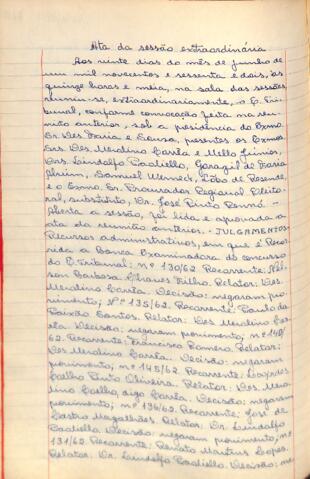 Ata da sessão extraordinária
Aos vinte dias do mês de junho de
um mil novecentos e sessenta e dois, às
quinze horas e meia, na sala das sessões
reuniu-se, extraordinariamente, o E. Tri-
bunal, conforme convocação feita na reu-
nião anterior, sob a presidencia do Exmo.
Sr. Des. Faria e Sousa, presentes os Exmos.
Srs. Des. Merolino Corrêa e Mello Junior,
Drs. Lindolfo Paoliello, de Faria
Alvim, Samuel Werneck, Lôbo de Resende,
e o Exmo. Sr. Procurador Regional Eleito-
ral, substituto, Dr. José Pinto Renó -
Aberta a sessão, foi lida e aprovada a
ata da reunião anterior. - JULGAMENTOS -
Recursos administrativos, em que é Recor-
rida a Banca Examinadora do concurso
do E. Tribunal: nº 130/62. Recorrente:
Barbosa Filho. Relator: Des.
Merolino Corrêa. Decisão: negaram pro-
vimento; nº 135/62. Recorrente: Paulo da
Paixão Santos. Relator: Des. Merolino Cor-
rêa. Decisão: negaram provimento; nº
62. Recorrente: Francisco Romero. Relator:
Des. Merolino Corrêa. Decisão: negaram
provimento; nº 145/62. Recorrente:
Coelho Pinto Oliveira. Relator: Des. Mero-
lino Coelho, digo Corrêa. Decisão: negaram
provimento; nº 136/62. Recorrente: José de
Castro Magalhães. Relator: Dr. Lindolfo
Paoliello. Decisão: negaram provimento; nº
131/62. Recorrente: Renato Martins Lopes.
Relator: Dr. Lindolfo Paoliello. Decisão: ne-